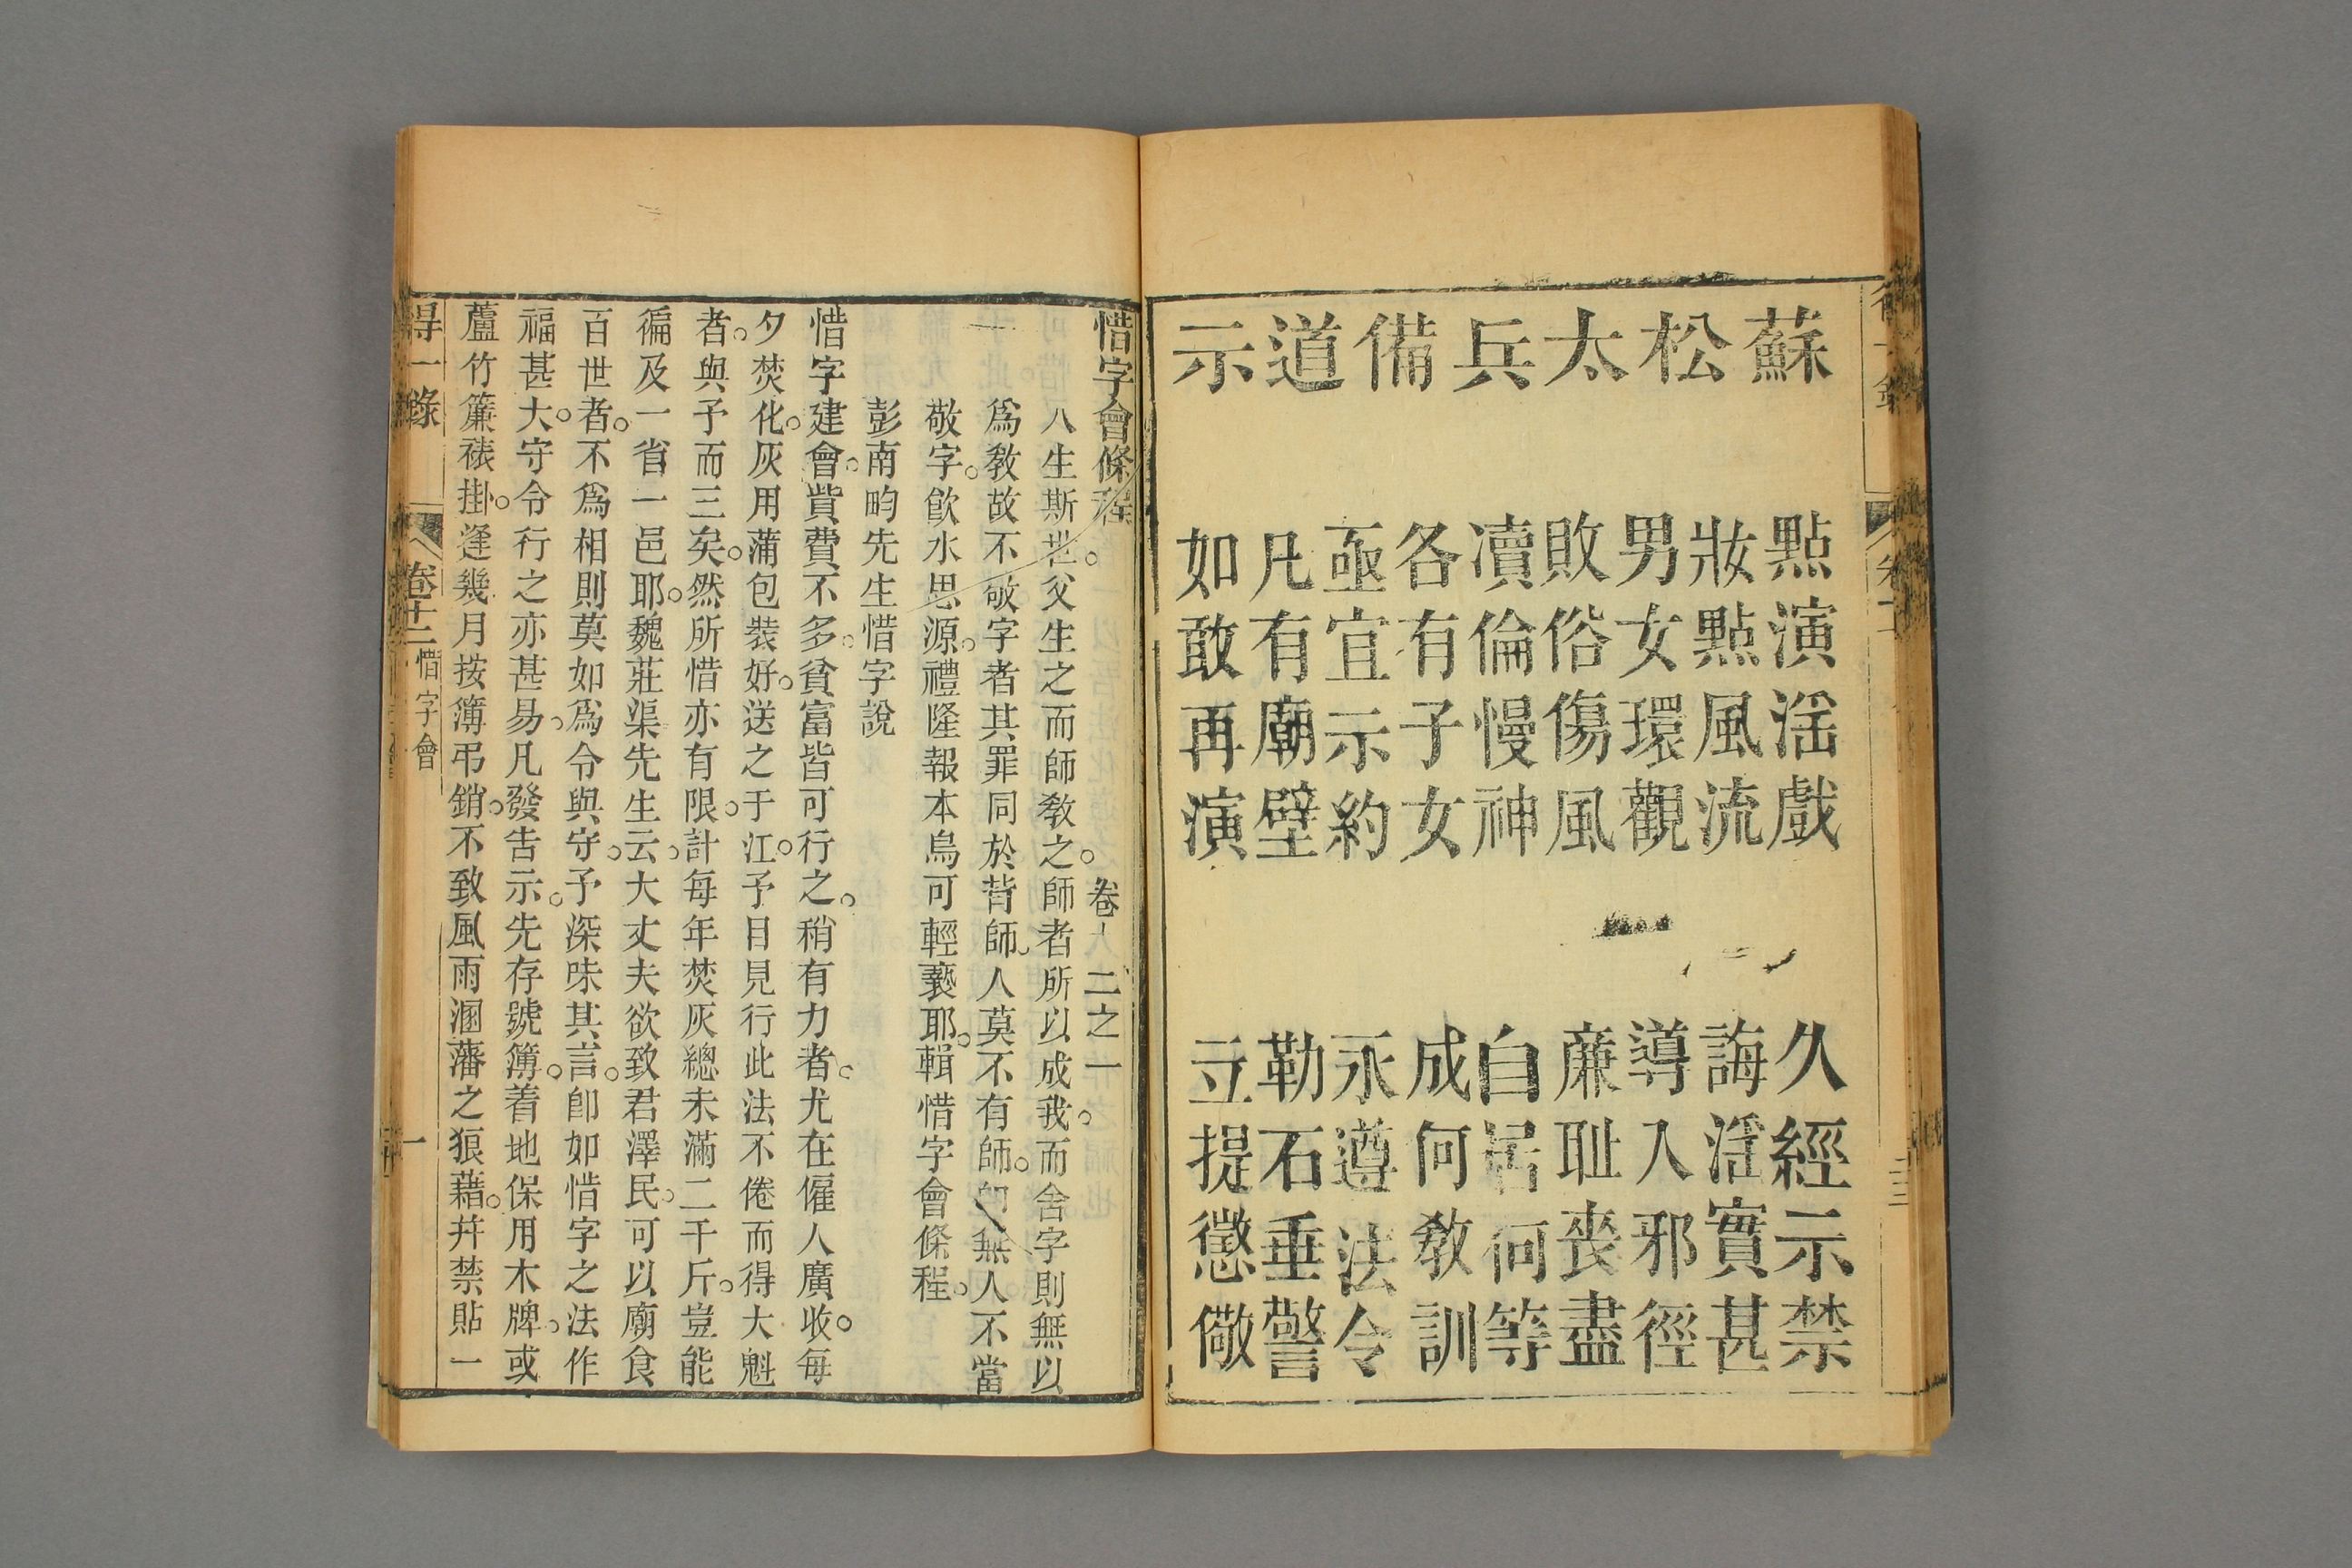 蘇松太兵備道示
點演滛戲
久經示禁
妝點風流
誨滛實甚
男女環觀
導人邪徑
敗俗傷風
廉耻喪盡
凟倫慢神
自居何等
各有子女
成何敎訓
亟宜示約
永遵法令
凡有廟壁
勒石垂警
如敢再演
立提懲儆
惜字會條程
卷十二之一
人生斯世。父生之而師敎之。師者所以成我。而舍字則無以
爲敎故不敬字者其罪同於背師。人莫不有師。卽無人不當
敬字。飮水思源。禮隆報本烏可輕褻耶。輯惜字會條程。
彭南畇先生惜字說
惜字建會。貲費不多。貧富皆可行之。稍有力者。尤在僱人廣收。每
夕焚化。灰用蒲包裝好。送之于江。予日見行此法不倦而得大魁
者。與予而三矣。然所惜亦有限。計每年焚灰總未滿二千斤。豈能
徧及一省一邑耶。魏莊渠先生云。大丈夫欲致君澤民。可以廟食
百世者。不爲相則莫如爲令與守。予深味其言。卽如惜字之法作
福甚大。守令行之亦甚易。凡發告示。先存號簿。着地保用木牌。或
蘆竹簾裱掛。逢幾月按簿弔銷。不致風雨溷藩之狼藉。幷禁貼一
得一錄
卷十二
惜字會
一